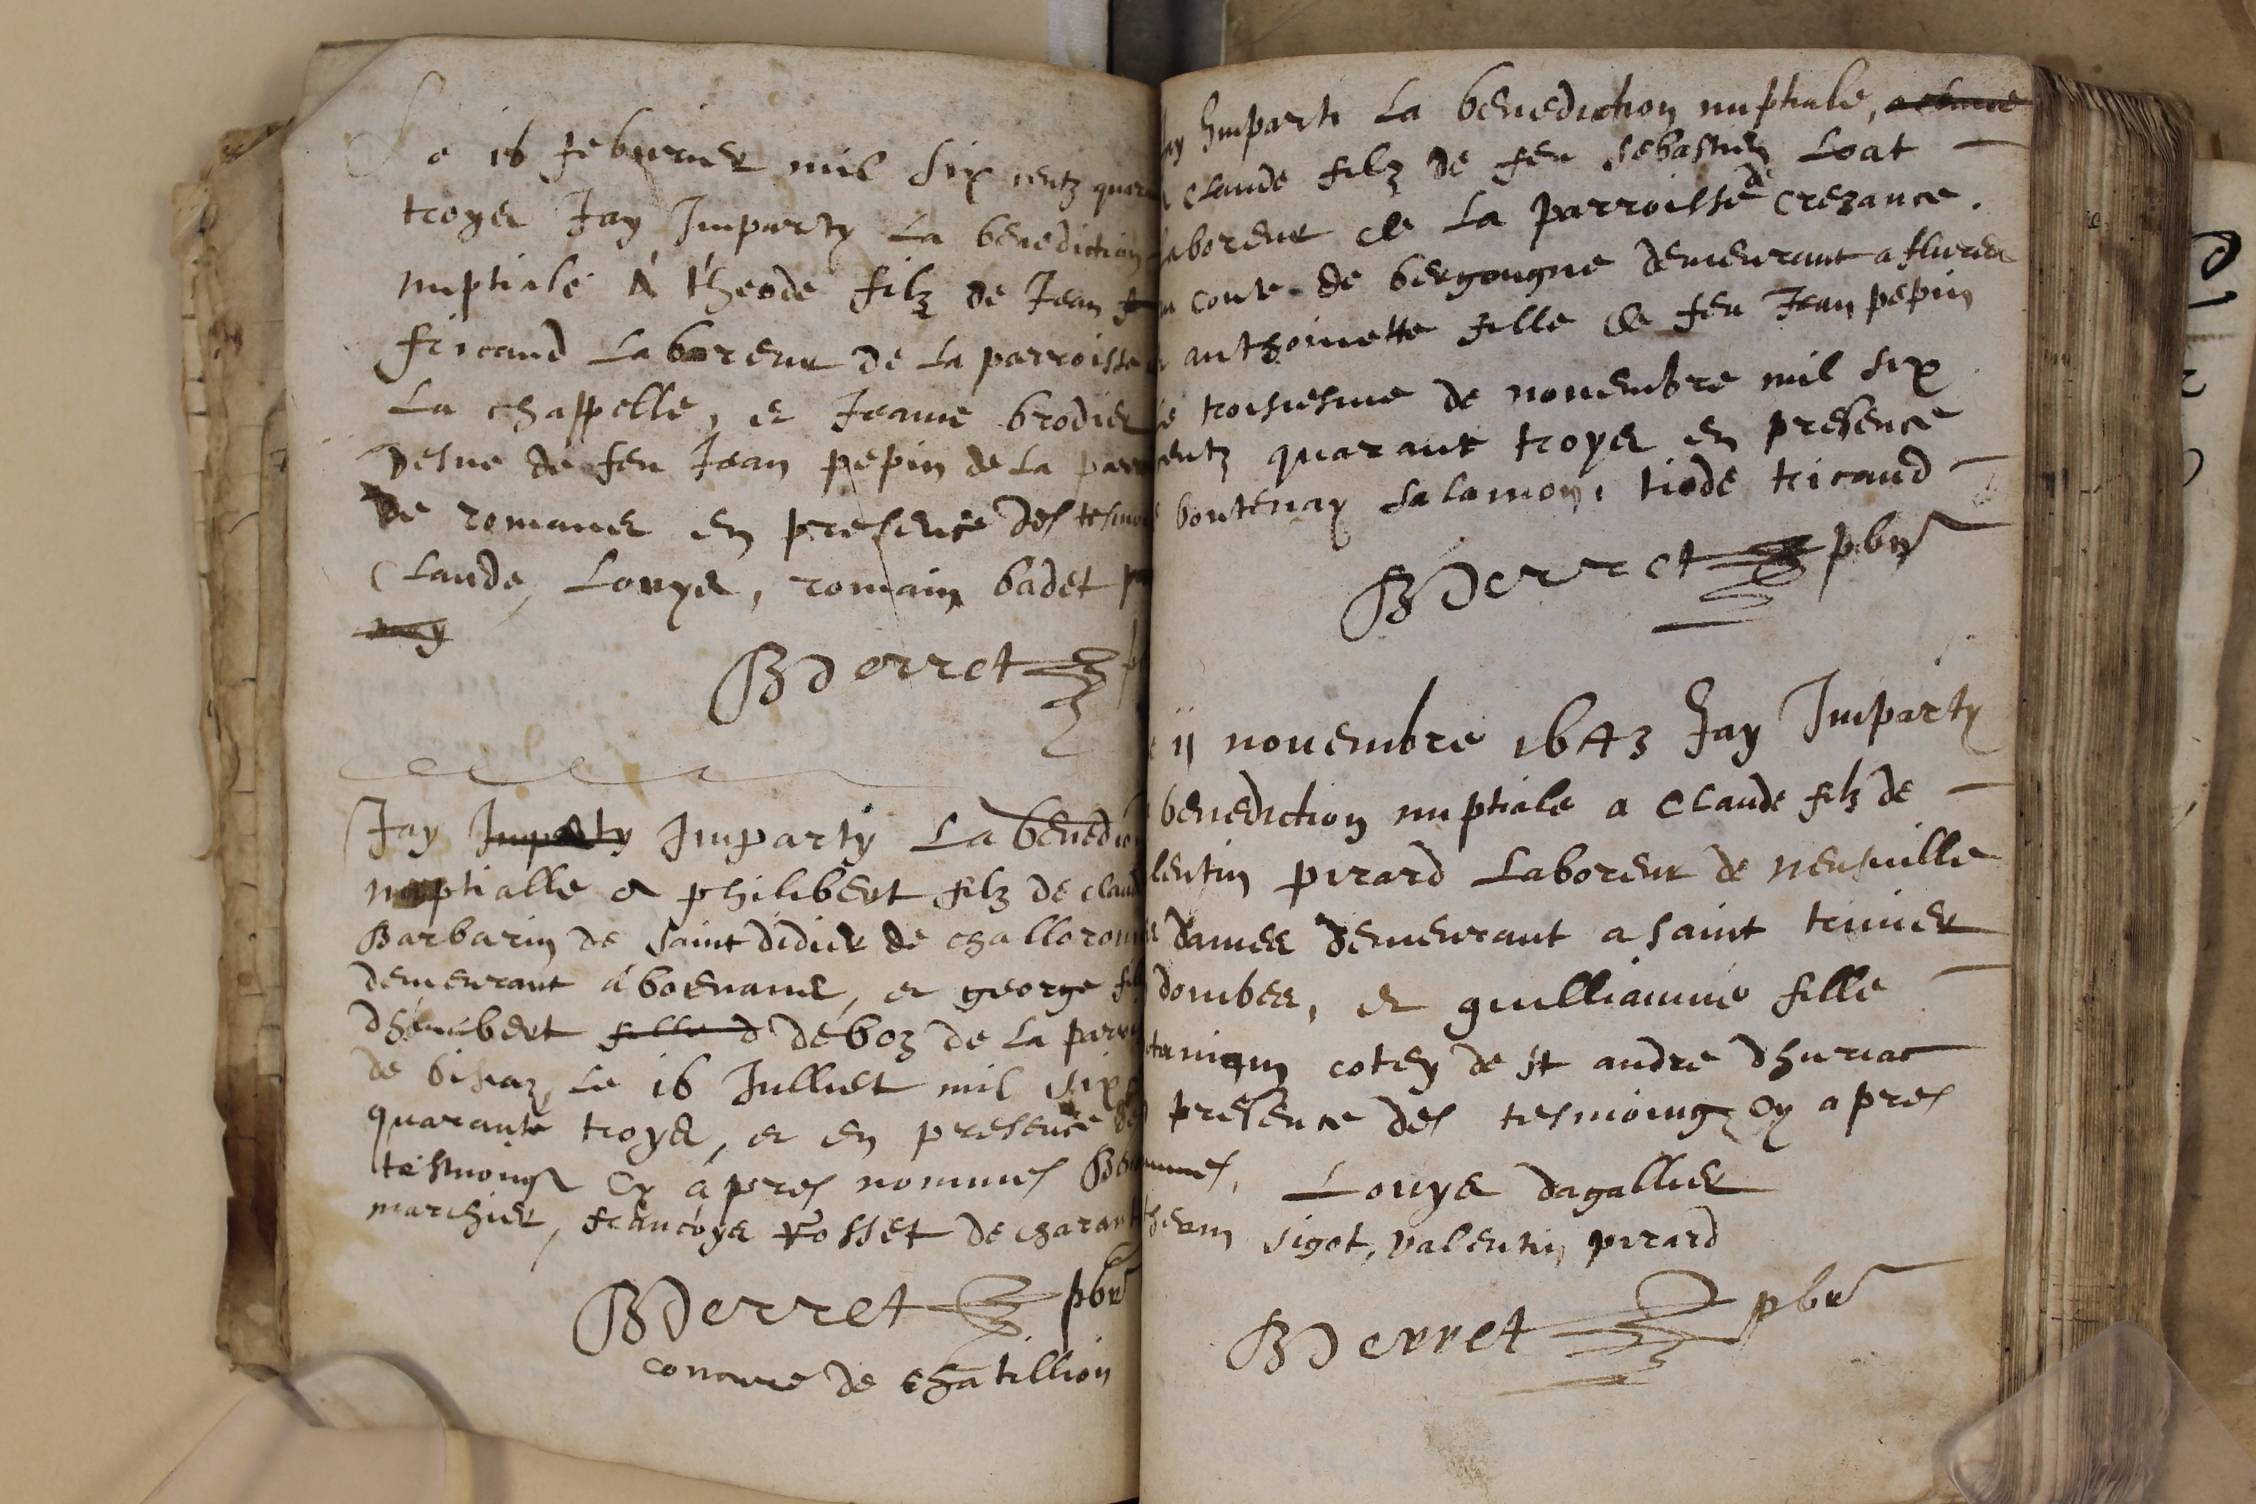 Le 16 febvrier mil six centz quara
troyes Jay Imparty La benediction
nuptiale A theode filz de Jean
fricaud Laboreur de La parroisse
La chappelle, et Jeanne brodier
vesve de feu Jean pepin de La parr
De romanes en presence des tesmo
Claude, Louys, romain badet
BDerret
Jay Imparty Imparty La benedic
nuptialle a philibert filz de claud
Barbarin de saint didier de challoron
demeurant a boenans, et george fil
dhumbert fille d deboz de La parr
de bisiaz, Le 16 Julliet mil six
quarante troys, et en presence de
tesmoings cy apres nommes Be
marchier, francoys rosset de charan
BDerret pbr
convare de chatillion
ay Imparti La benediction nuptiale,
Claude filz de feu sebastien Loat
aboreur de La parroisse de Crezance.
conte de bergougne demeurant a flurieu
anthoinette fille de feu Jean pepin
troisiesme de novembre mil six
entz quarant troys en presence
boutenay salamon, tiode tricaud
BDerret pbr
11 novembre 1643 Jay Imparty
benediction nuptiale a Claude filz de
lentin pirard Laboreur de neufville
dames demeurant a saint trivier
dombes, et guilliamme fille
cotey de st andre dhuriat
presence des tesmoingz cy apres
mmes, Louys dagallier
sigot, valentin pirard
BDerret pbr